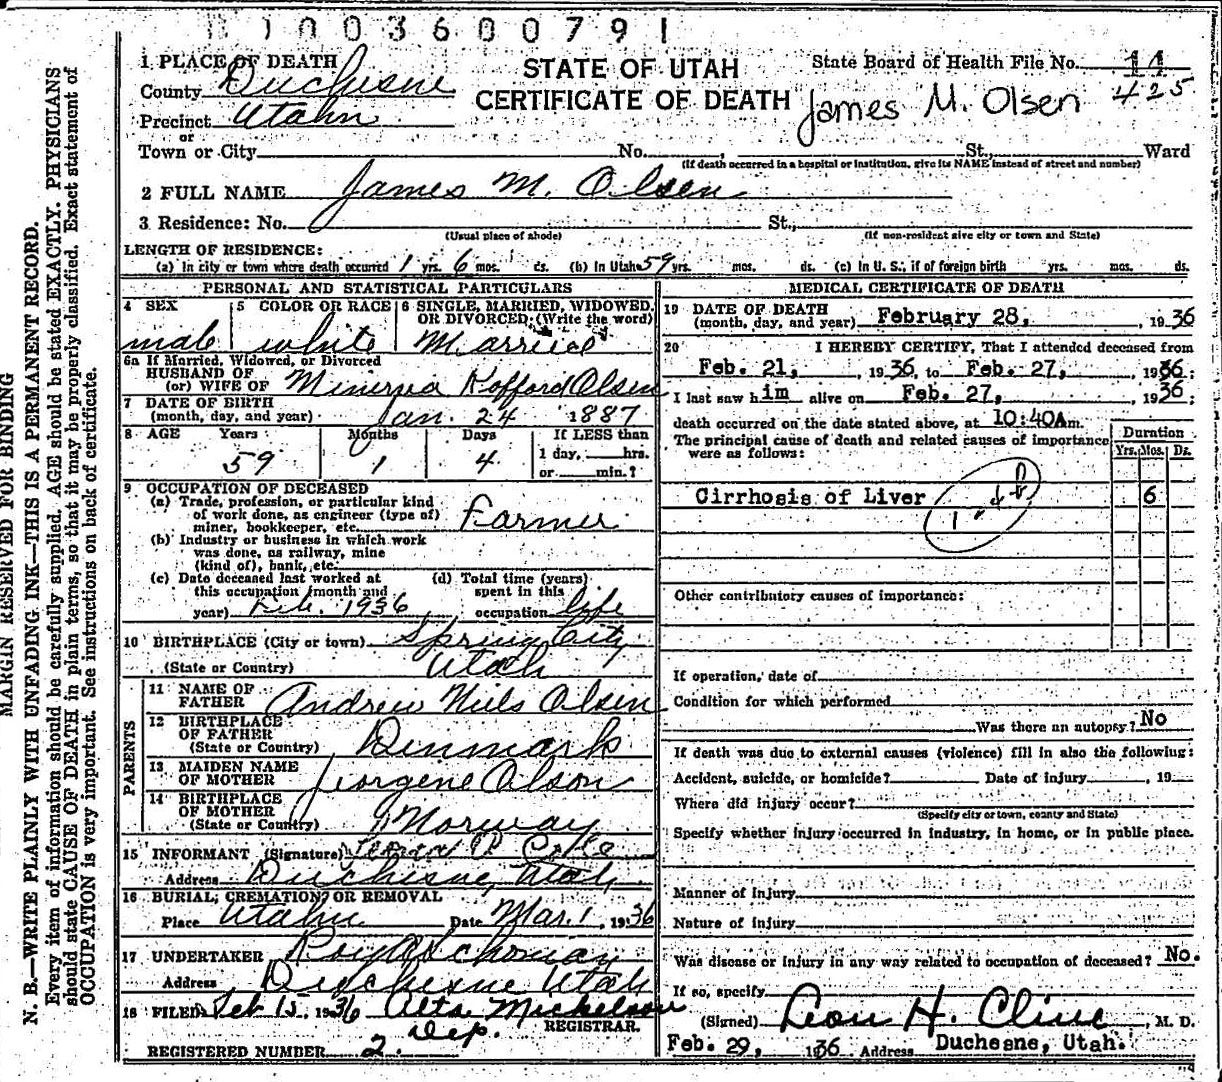 1003600791
1 PLACE OF DEATH
County Duchesne
Precinct Utahn
or
Town or City No. , St., Ward
(If death occurred in a hospital or institution, give its NAME instead of street and number)
STATE OF UTAH
CERTIFICATE OF DEATH
State Board of Health File No. 11
425
James M. Olsen
2 FULL NAME James M. Olsen
3 Residence: No. St.,
(Usual place of abode) (If non-resident give city or town and State)
LENGTH OF RESIDENCE:
(a) In city or town where death occurred 1 yrs. 6 mos. ds. (b) In Utah 59 yrs. mos. ds. (c) In U. S., if of foreign birth yrs. mos. ds.
PERSONAL AND STATISTICAL PARTICULARS
4 SEX
male
5 COLOR OR RACE
white
6 SINGLE, MARRIED, WIDOWED,
OR DIVORCED: (Write the word)
Married
6a If Married, Widowed, or Divorced
HUSBAND OF
(or) WIFE OF Minerva Kofford Olsen
7 DATE OF BIRTH
(month, day, and year) Jan. 24 1887
8 AGE Years Months Days If LESS than
59 1 4 1 day, hrs.
or min.?
9 OCCUPATION OF DECEASED
(a) Trade, profession, or particular kind
of work done, as engineer (type of)
miner, bookkeeper, etc. Farmer
(b) Industry or business in which work
was done, as railway, mine
(kind of), bank, etc.
(c) Date deceased last worked at
this occupation (month and
year) Feb. 1936
(d) Total time (years)
spent in this
occupation life
10 BIRTHPLACE (City or town) Spring City
(State or Country) Utah
PARENTS
11 NAME OF
FATHER Andrew Niels Olsen
12 BIRTHPLACE
OF FATHER
(State or Country) Denmark
13 MAIDEN NAME
OF MOTHER Georgene Olson
14 BIRTHPLACE
OF MOTHER
(State or Country) Norway
15 INFORMANT (Signature)
Address Duchesne, Utah
16 BURIAL, CREMATION, OR REMOVAL
Place Utahn Date Mar. 1, 1936
17 UNDERTAKER Roy A Schonian
Address Duchesne Utah
18 FILED Feb 15, 1936 Alta Mickelson
Dep. REGISTRAR.
REGISTERED NUMBER 2.
MEDICAL CERTIFICATE OF DEATH
19 DATE OF DEATH
(month, day, and year) February 28, , 1936
20 I HEREBY CERTIFY, That I attended deceased from
Feb. 21, , 1936, to Feb. 27, , 1936;
I last saw him alive on Feb. 27, , 1936;
death occurred on the date stated above, at 10:40A m.
The principal cause of death and related causes of importance
were as follows:
Duration
Yrs. Mos. Ds.
Cirrhosis of Liver 6
Other contributory causes of importance:
If operation, date of
Condition for which performed
Was there an autopsy? No
If death was due to external causes (violence) fill in also the following:
Accident, suicide, or homicide? Date of injury , 19
Where did injury occur?
(Specify city or town, county and State)
Specify whether injury occurred in industry, in home, or in public place.
Manner of injury
Nature of injury
Was disease or injury in any way related to occupation of deceased? No.
If so, specify
(Signed) Leon H. Cline , M. D.
Feb. 29, 1936 Address Duchesne, Utah.
MARGIN RESERVED FOR BINDING
N. B.—WRITE PLAINLY WITH UNFADING INK—THIS IS A PERMANENT RECORD.
Every item of information should be carefully supplied. AGE should be stated EXACTLY. PHYSICIANS
should state CAUSE OF DEATH in plain terms, so that it may be properly classified. Exact statement of
OCCUPATION is very important. See instructions on back of certificate.